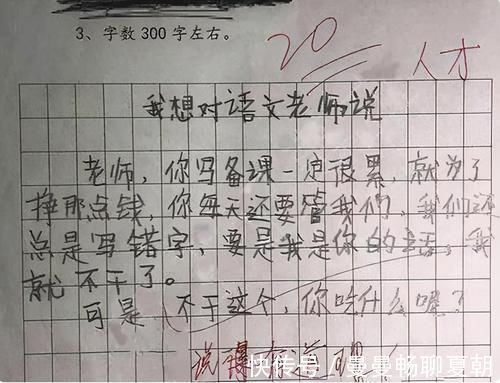 3、字数300字左右。
20
人才
我想对语文老师说
老师，你写备课一定很累，就为了
挣那点钱，你每天还要管我们，我们还
总是写错字，要是我是你的话，我
就不干了。
可是，不干这个，你吃什么喔？
说得有道
快传号/曼曼畅聊夏朝